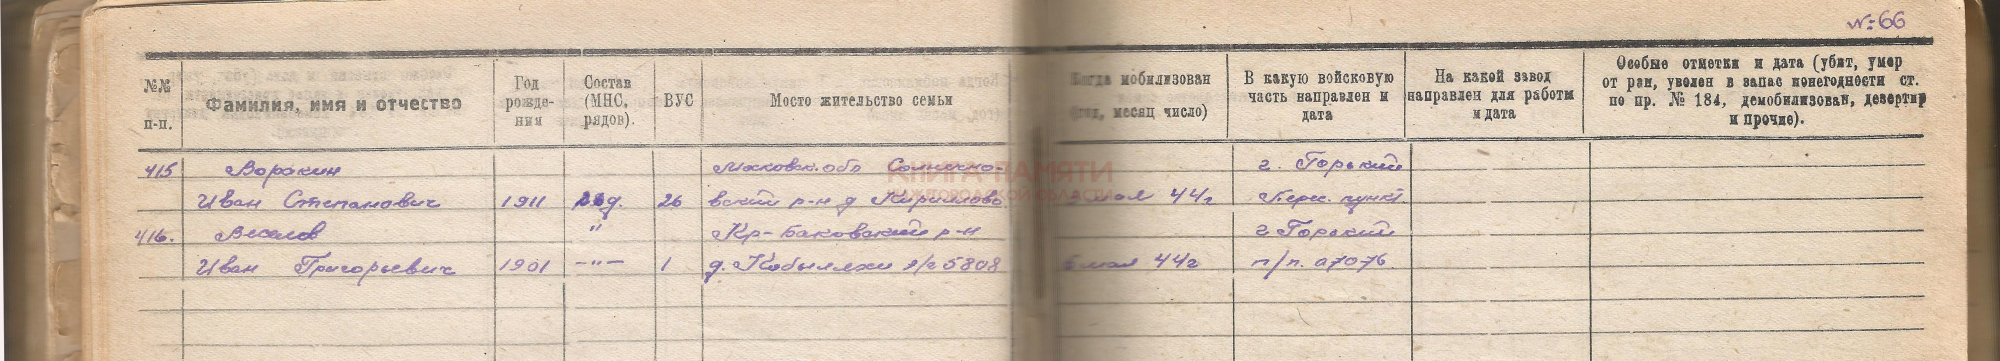 № 66
№№ п-п.
Фамилия, имя и отчество
Год рожде- ния
Состав (МНС, рядов).
ВУС
Мосто жительство семьи
Когда мобилизован (год, месяц число)
В какую войсковую часть направлен и дата
На какой завод направлен для работы и дата
Особые отметки и дата (убит, умер от ран, уволен в запас понегодности ст. по пр. № 184, демобилизован, дезертир и прочие).
КНИГА ПАМЯТИ
НИЖЕГОРОДСКОЙ ОБЛАСТИ
415 Воракин Московск. обл г. Горький
Иван Степанович 1911 26 вский р-н д Кириллово мая 44г Перес. пункт
416. Веселов " Кр-Баковский р-н г Горький
Иван Григорьевич 1901 —"— 1 д. Кобыляхи п/с 5808 6 мая 44г п/п. 07076